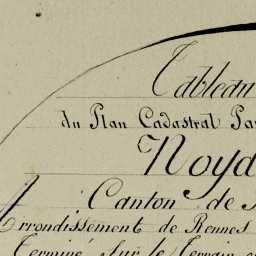 Tableau
du Plan Cadastral
Canton de
Arrondissement de Rennes
Terminé sur le Terrain